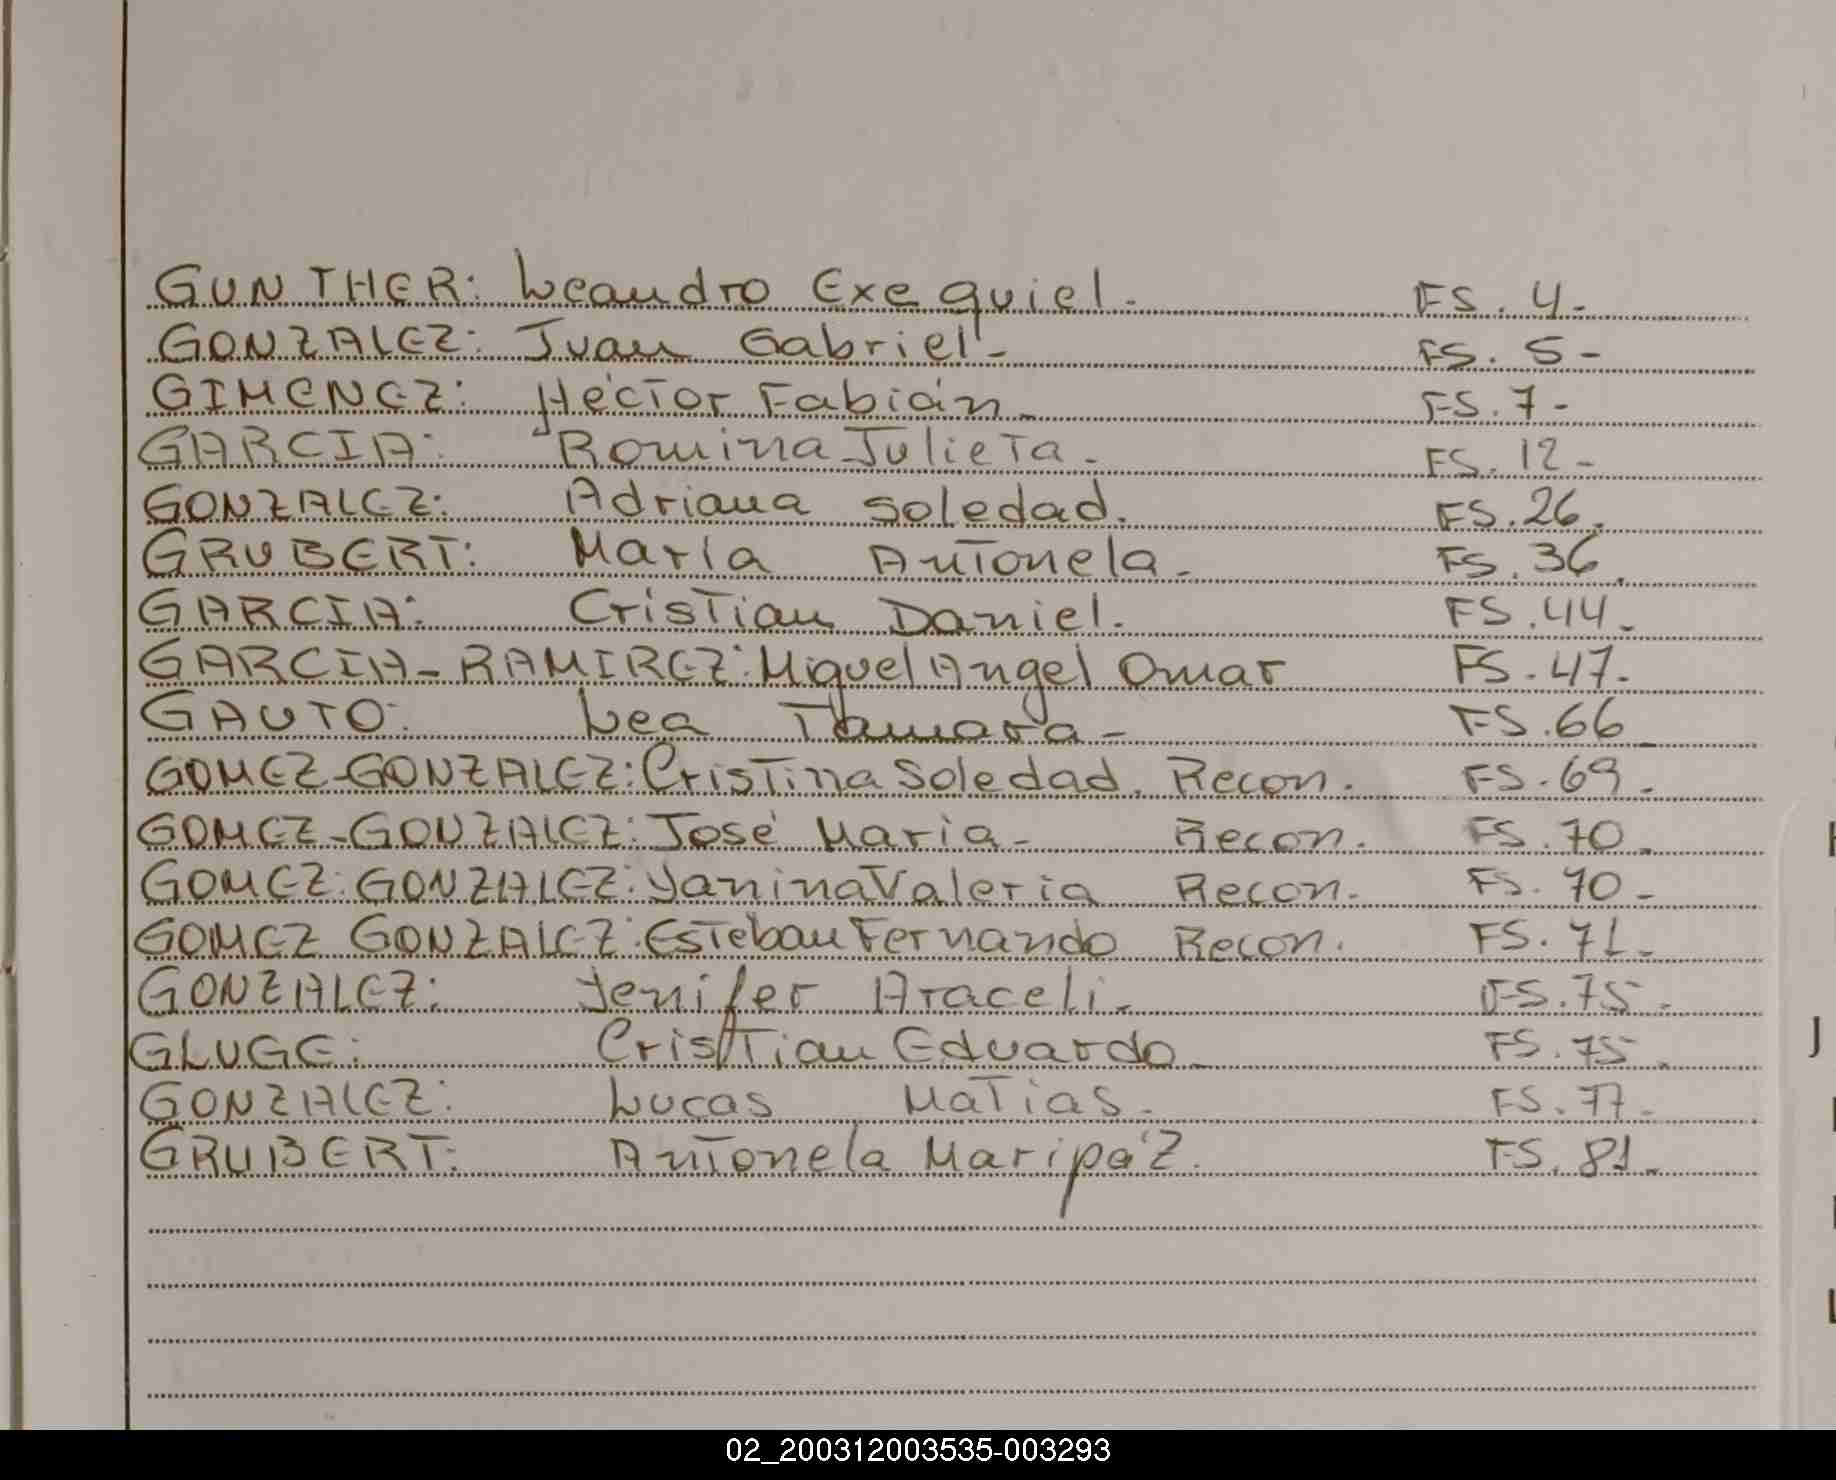 GUNTHER: Leandro Exequiel. FS. 4-
GONZALEZ: Juan Gabriel- FS. 5-
GIMENEZ: Héctor Fabián- FS. 7-
GARCIA: Romina Julieta- FS. 12-
GONZALEZ: Adriana Soledad. FS. 26.
GRUBERT: María Antonela- FS. 36.
GARCIA: Cristian Daniel. FS. 44-
GARCIA-RAMIREZ: Miguel Angel Omar FS. 47-
GAUTO: Lea Tamara- FS. 66-
GOMEZ-GONZALEZ: Cristina Soledad. Recon. FS. 69.
GOMEZ-GONZALEZ: José Maria- Recon. FS. 70-
GOMEZ: GONZALEZ: Yanina Valeria Recon. FS. 70-
GOMEZ GONZALEZ: Esteban Fernando Recon. FS. 71-
GONZALEZ: Yenifer Araceli- FS. 75.
GLUGE: Cristian Eduardo- FS. 75.
GONZALEZ: Lucas Matias. FS. 77-
GRUBERT: Antonela Maripáz. FS. 81-
J
02_200312003535-003293